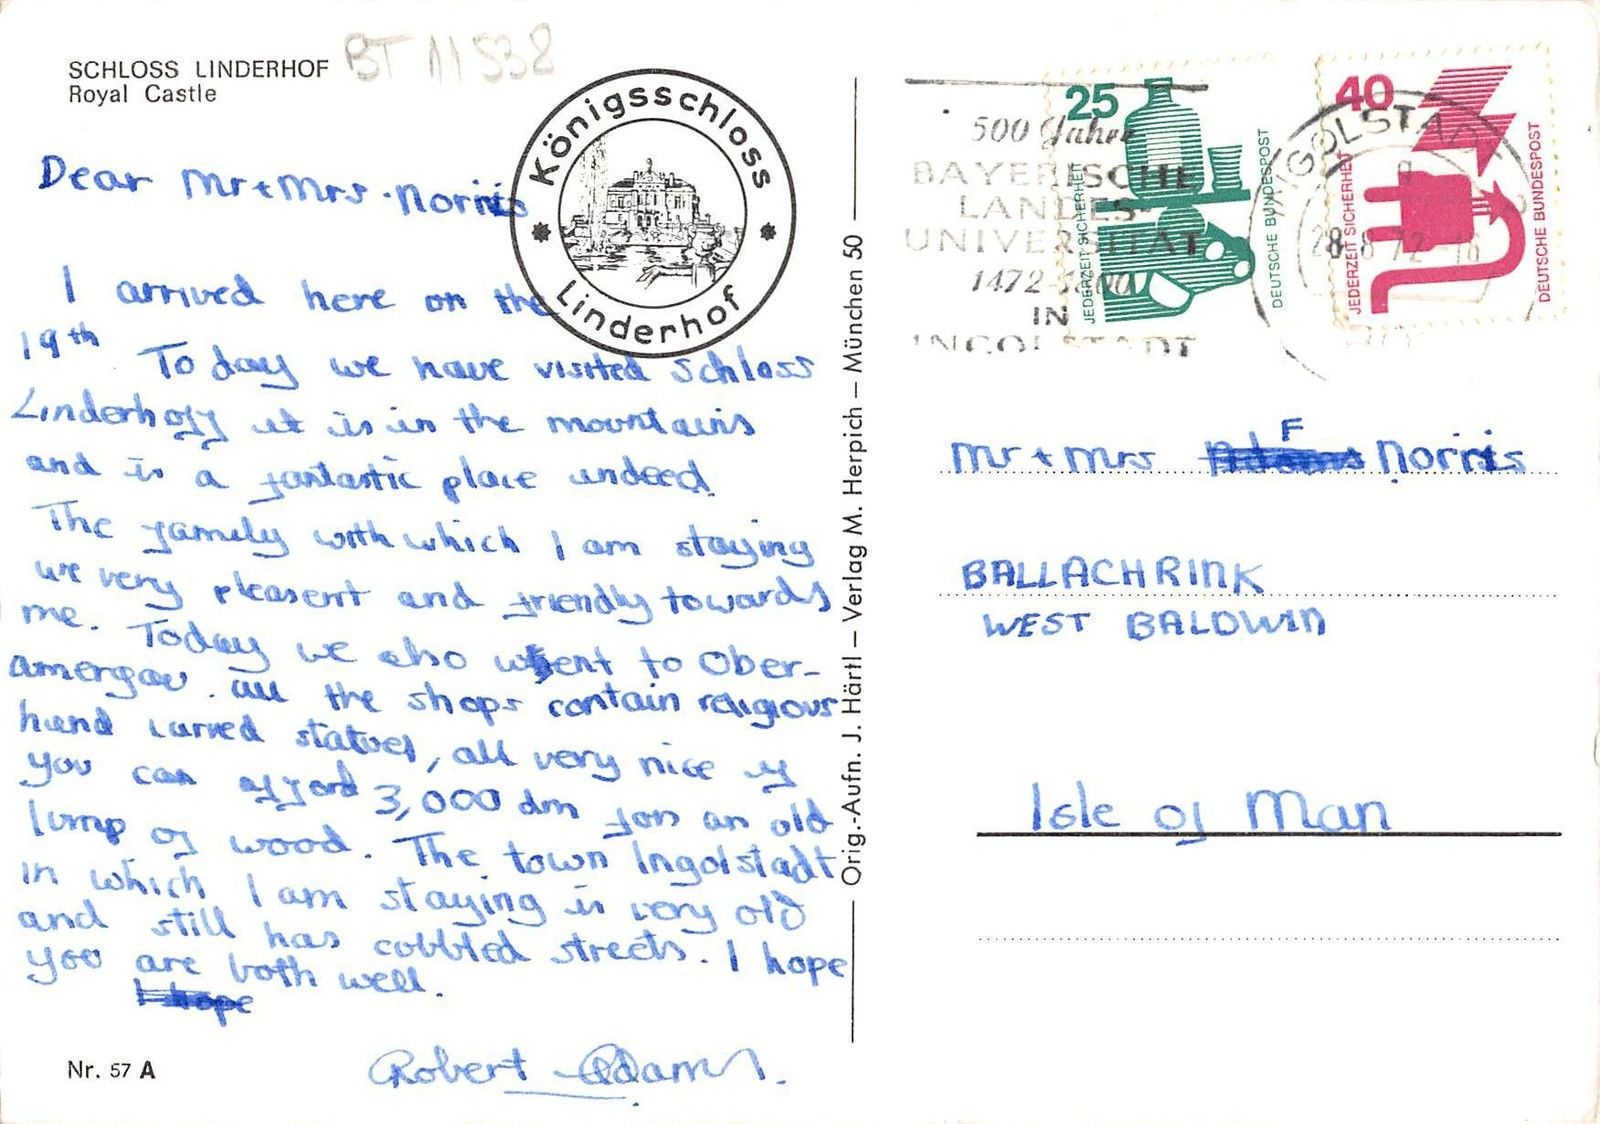 SCHLOSS LINDERHOF
Royal Castle
BT 11538
Königsschloss
Linderhof
Dear Mr + Mrs. Norris
I arrived here on the
19th Today we have visited Schloss
Linderhoff it is in the mountains
and is a fantastic place indeed.
The family with which I am staying
are very pleasent and friendly towards
me. Today we also went to Ober-
amergau. all the shops contain religious
hand carved statues, all very nice if
you can afford 3,000 dm for an old
lump of wood. The town Ingolstadt
in which I am staying is very old
and still has cobbled streets. I hope
you are both well.
I hope
Robert Adams.
Nr. 57 A
Orig.-Aufn. J. Härtl – Verlag M. Herpich – München 50
500 Jahre
BAYERISCHE
LANDES-
UNIVERSITÄT
1472-1800
IN
INGOLSTADT
25
JEDERZEIT SICHERHEIT
DEUTSCHE BUNDESPOST
40
JEDERZEIT SICHERHEIT
DEUTSCHE BUNDESPOST
INGOLSTADT
28.8.72-16
F
Mr + Mrs Adams Norris
BALLACHRINK
WEST BALDWIN
Isle of Man